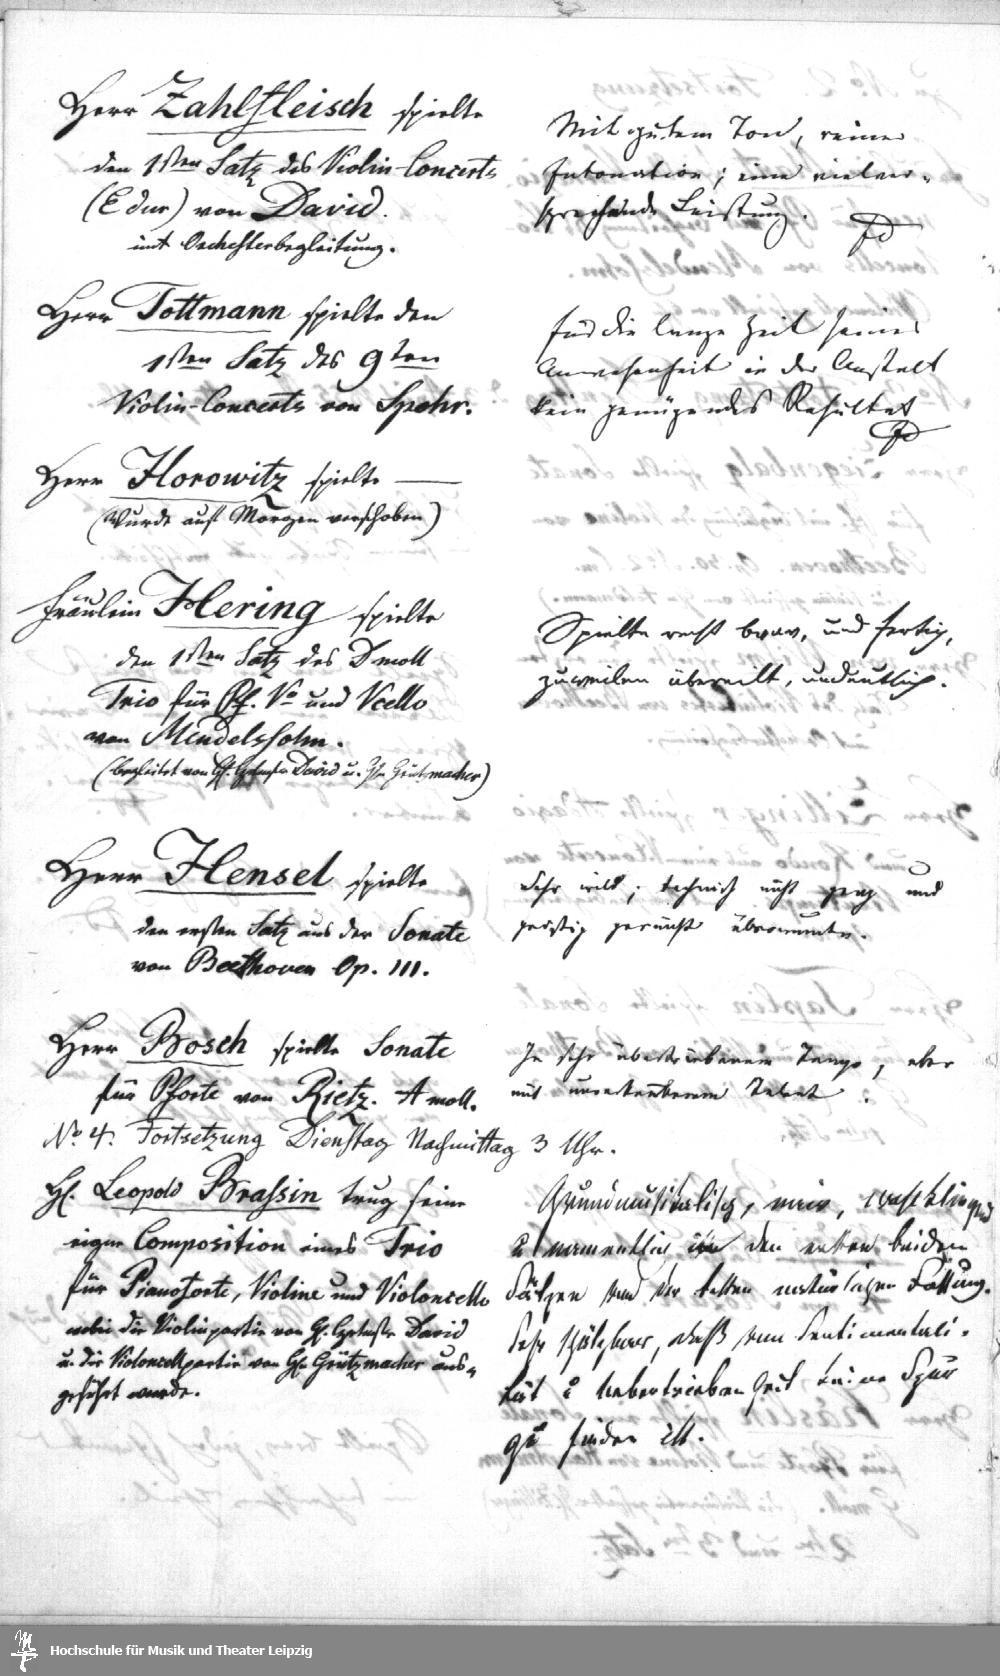 Herr Zahlfleisch spielte
den 1sten Satz des Violin-Concerts
(E dur) von David.
mit Orchesterbegleitung.
Mit gutem Ton, reiner
Intonation; eine vielver-
sprechende Leistung.
FD
Herr Tottmann spielte den
1sten Satz des 9ten
Violin-Concerts von Spohr.
für die lange Zeit seiner
Anwesenheit in der Anstalt
kein genügendes Resultat
FD
Herr Horowitz spielte —
(Wurde auf Morgen verschoben)
Fräulein Hering spielte
den 1sten Satz des D moll
Trio für Pf. Vo und Vcello
von Mendelssohn.
(begleitet von H. David u. Hn Grützmacher)
Spielte recht brav, und fertig,
zuweilen übereilt, undeutlich.
Herr Hensel spielte
den ersten Satz aus der Sonate
von Beethoven Op. 111.
Sehr wild; technisch nicht ganz und
geistig
Herr Bosch spielte Sonate
für Pforte von Rietz. A moll.
In sehr übertriebenem Tempo, aber
mit unverkennbarem Talent.
No 4. Fortsetzung Dienstag Nachmittag 3 Uhr.
H. Leopold Brassin trug seine
eigne Composition eines Trio
für Pianoforte, Violine und Violoncello
wobei die Violinpartie von H. David
u. die Violoncellpartie von Hn Grützmacher aus-
geführt wurde.
Grundmusikalisch, rein, wohlklingend
& namentlich in den ersten beiden
Sätzen von der besten natürlichen Fassung.
Sehr schätzbar, daß von Sentimentali-
tät & Uebertriebenheit keine Spur
zu finden ist.
Hochschule für Musik und Theater Leipzig